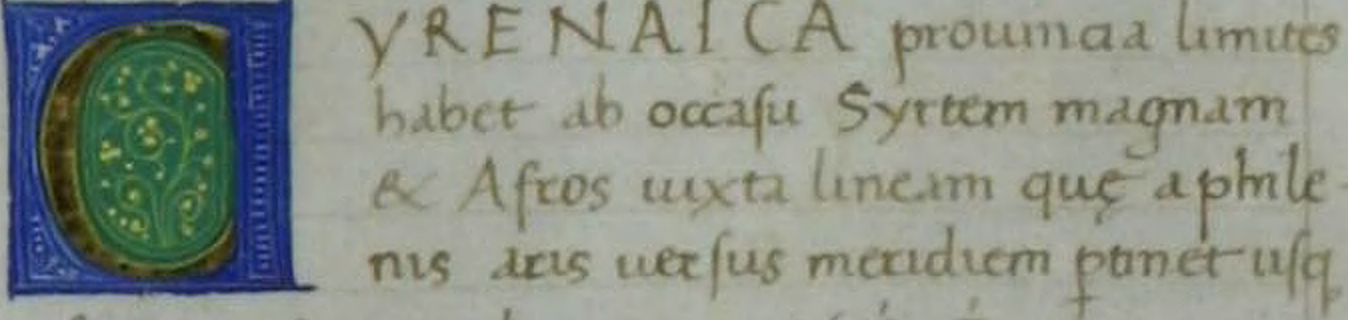 CYRENAICA prouincia limites
habet ab occasu Syrtem magnam
& Afros iuxta lineam quę a phile
nis aris uersus meridiem ptinet usq